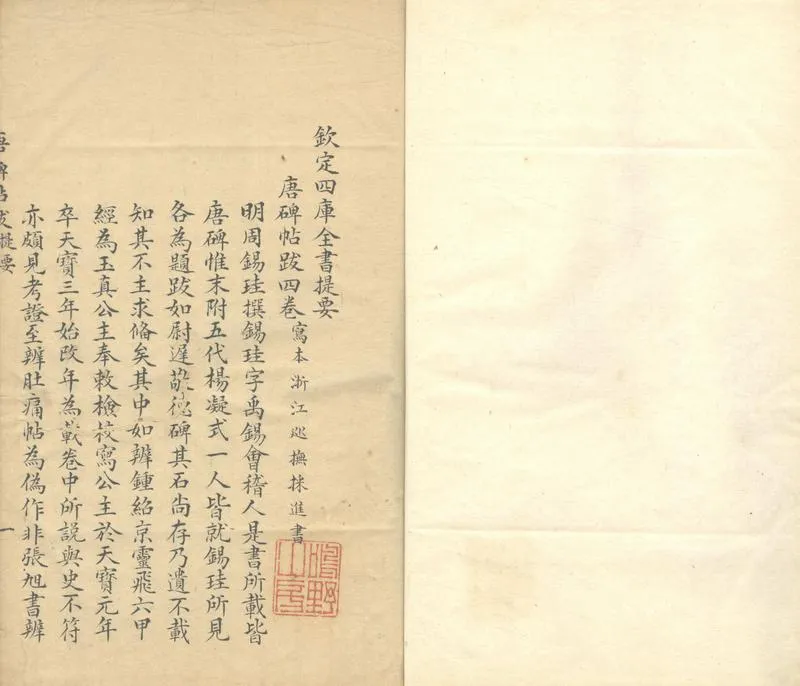 欽定四庫全書提要
唐碑帖跋四卷寫本浙江巡撫採進書
明周錫珪撰錫珪字禹錫會稽人是書所載皆
唐碑惟末附五代楊凝式一人皆就錫珪所見
各為題跋如尉遲敬德碑其石尚存乃遺不載
知其不主求備矣其中如辨鍾紹京靈飛六甲
經為玉真公主奉敕檢挍寫公主於天寶元年
卒天寶三年始改年為載卷中所説與史不符
亦頗見考證至辨肚痛帖為偽作非張旭書辨
唐碑帖跋提要
一